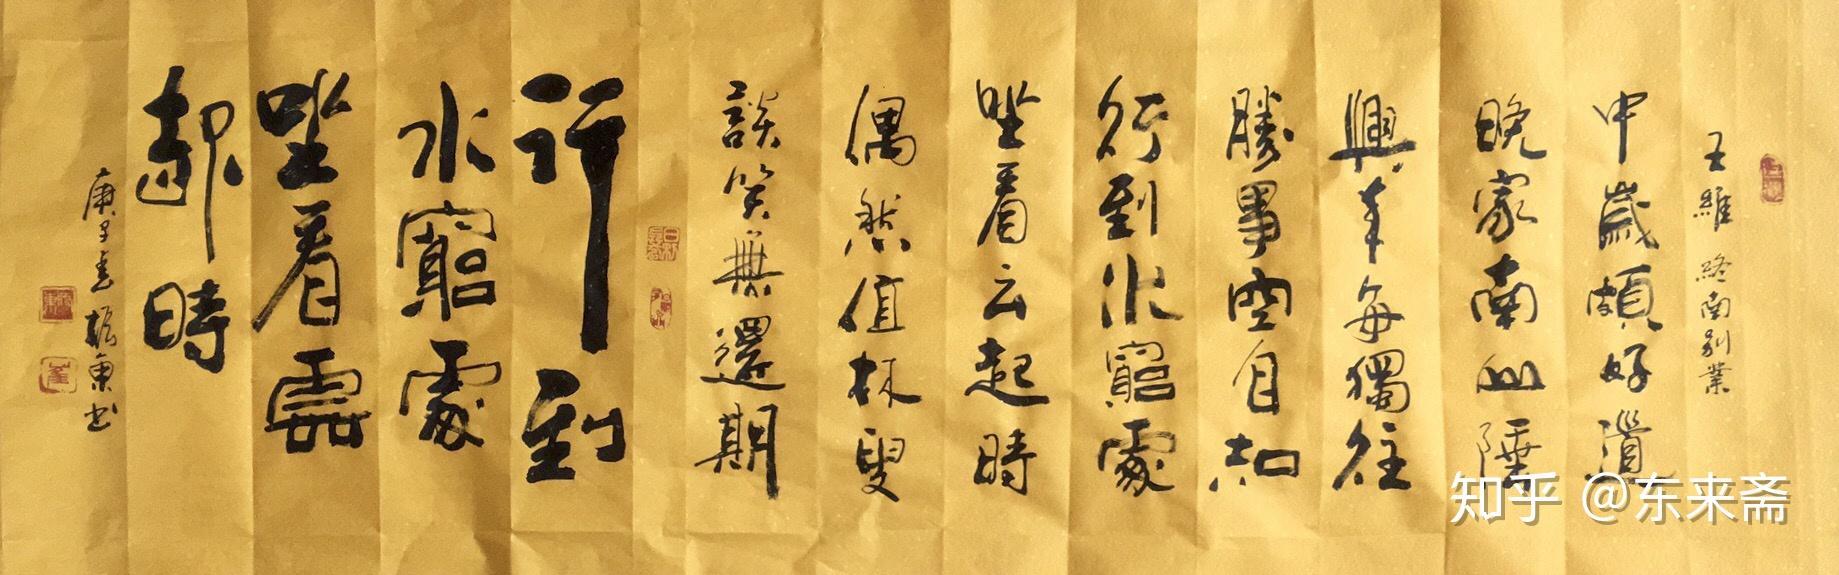 王維 終南別業
中歲頗好道
晚家南山陲
興來每獨往
勝事空自知
行到水窮處
坐看云起時
偶然值林叟
談笑無還期
行到
水窮處
坐看雲
起時
庚子春 振東书
知乎 @东来斋